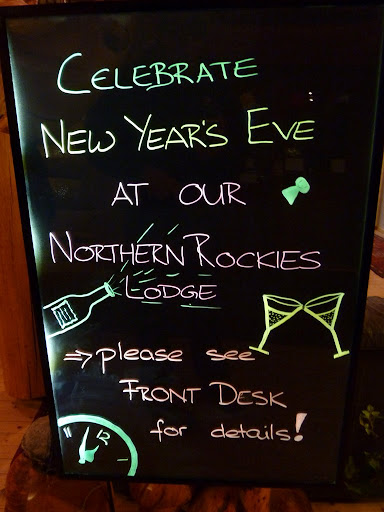 CELEBRATE
NEW YEAR'S EVE
AT OUR
NORTHERN ROCKIES
LODGE
⇒ please see
FRONT DESK
for details!